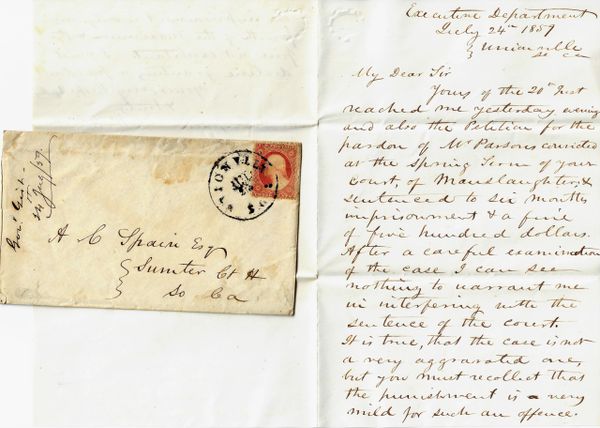 Executive Department
July 24th 1857
Unionville
So Ca
My Dear Sir
Yours of the 20th Inst
reached me yesterday evening
and also the Petition for the
pardon of Mr Parsons convicted
at the Spring Term of your
court, of Manslaughter, &
sentenced to six months
imprisonment & a fine
of five hundred dollars.
After a careful examination
of the case I can see
nothing to warrant me
in interfering with the
sentence of the court.
It is true, that the case is not
a very aggravated one,
but you must recollect that
the punishment is a very
mild for such an offence.
UNIONVILLE
S.C.
A C Spain Esq
Sumter Ct H
So Ca